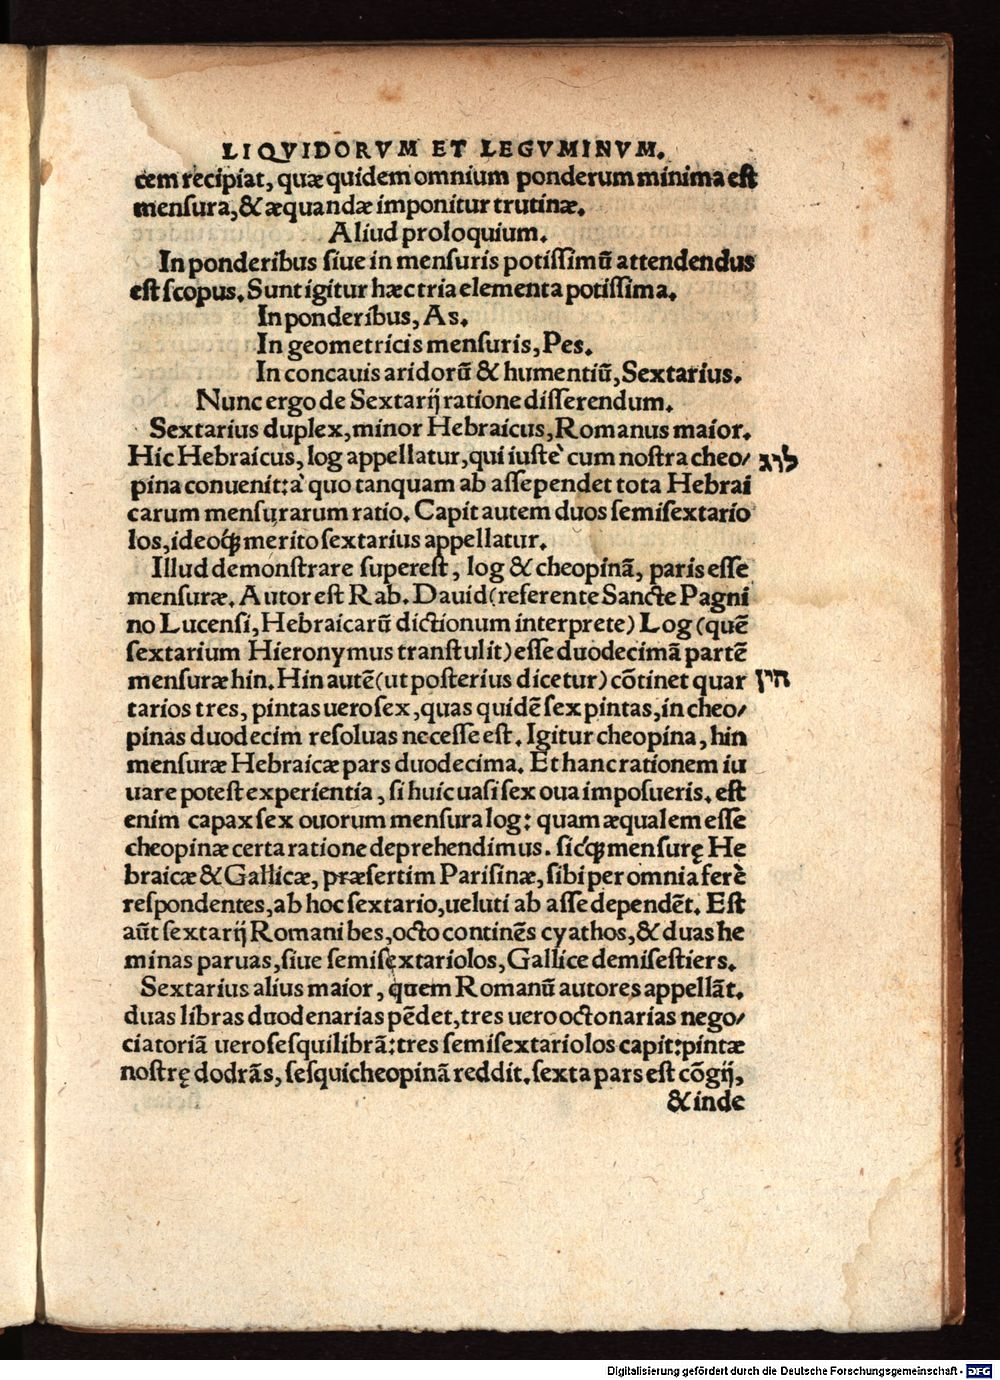 LIQVIDORVM ET LEGVMINVM.
cem recipiat, quæ quidem omnium ponderum minima est
mensura, & æquandæ imponitur trutinæ.
Aliud proloquium.
In ponderibus siue in mensuris potissimū attendendus
est scopus. Sunt igitur hæc tria elementa potissima.
In ponderibus, As.
In geometricis mensuris, Pes.
In concauis aridorū & humentiū, Sextarius.
Nunc ergo de Sextarij ratione disserendum.
Sextarius duplex, minor Hebraicus, Romanus maior.
Hic Hebraicus, log appellatur, qui iustè cum nostra cheo/ לוג
pina conuenit: à quo tanquam ab asse pendet tota Hebrai
carum mensurarum ratio. Capit autem duos semisextario
los, ideoq́ꝫ merito sextarius appellatur.
Illud demonstrare superest, log & cheopinā, paris esse
mensuræ. Autor est Rab. Dauid (referente Sancte Pagni
no Lucensi, Hebraicarū dictionum interprete) Log (quē
sextarium Hieronymus transtulit) esse duodecimā partē
mensuræ hin. Hin autē (ut posterius dicetur) cōtinet quar הין
tarios tres, pintas uero sex, quas quidē sex pintas, in cheo/
pinas duodecim resoluas necesse est. Igitur cheopina, hin
mensuræ Hebraicæ pars duodecima. Et hanc rationem iu
uare potest experientia, si huic uasi sex oua imposueris. est
enim capax sex ouorum mensura log: quam æqualem esse
cheopinæ certa ratione deprehendimus. sicq́ꝫ mensurę He
braicæ & Gallicæ, præsertim Parisinæ, sibi per omnia ferè
respondentes, ab hoc sextario, ueluti ab asse dependēt. Est
aūt sextarij Romani bes, octo continēs cyathos, & duas he
minas paruas, siue semisextariolos, Gallice demisestiers.
Sextarius alius maior, quem Romanū autores appellāt.
duas libras duodenarias pēdet, tres uero octonarias nego/
ciatoriā uero sesquilibrā: tres semisextariolos capit: pintæ
nostrę dodrās, sesquicheopinā reddit. sexta pars est cōgij,
& inde
Digitalisierung gefördert durch die Deutsche Forschungsgemeinschaft - DFG